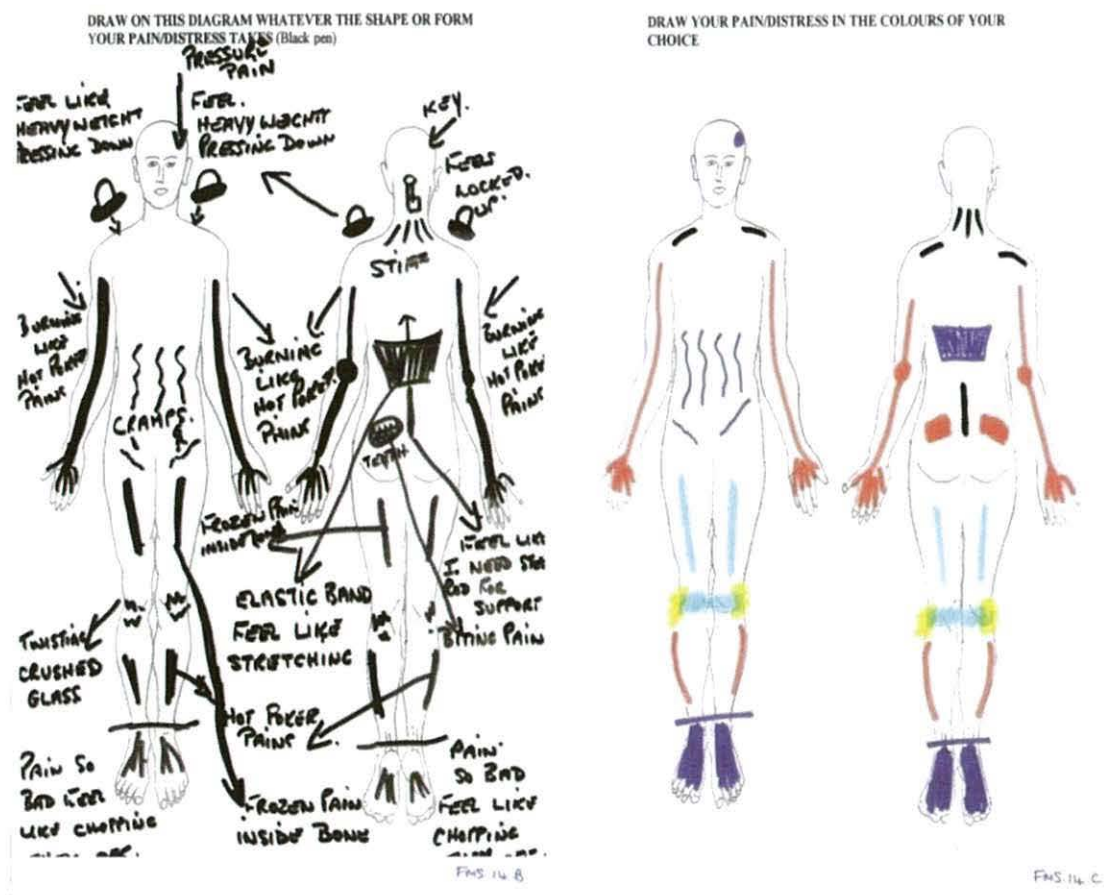 DRAW ON THIS DIAGRAM WHATEVER THE SHAPE OR FORM
YOUR PAIN/DISTRESS TAKES (Black pen)
PRESSURE
PAIN
FEEL LIKE
HEAVY WEIGHT
PRESSING DOWN
FEEL.
HEAVY WEIGHT
PRESSING DOWN
KEY.
FEELS
LOCKED.
UP.
STIFF
BURNING
LIKE
HOT POKER
PAINS
BURNING
LIKE
HOT POKER.
PAINS
BURNING
LIKE
HOT POKE
PAINS
CRAMPS.
TEETH
FROZEN PAIN
INSIDE BONE
FEEL LIKE
I NEED
ROD FOR
SUPPORT
BITING PAIN
ELASTIC BAND
FEEL LIKE
STRETCHING
TWISTING
CRUSHED
GLASS
HOT POKER
PAINS
PAIN SO
BAD FEEL
LIKE CHOPPING
FROZEN PAIN
INSIDE BONE
PAIN
SO BAD
FEEL LIKE
CHOPPING
FMS.14.B
DRAW YOUR PAIN/DISTRESS IN THE COLOURS OF YOUR
CHOICE
FMS.14.C